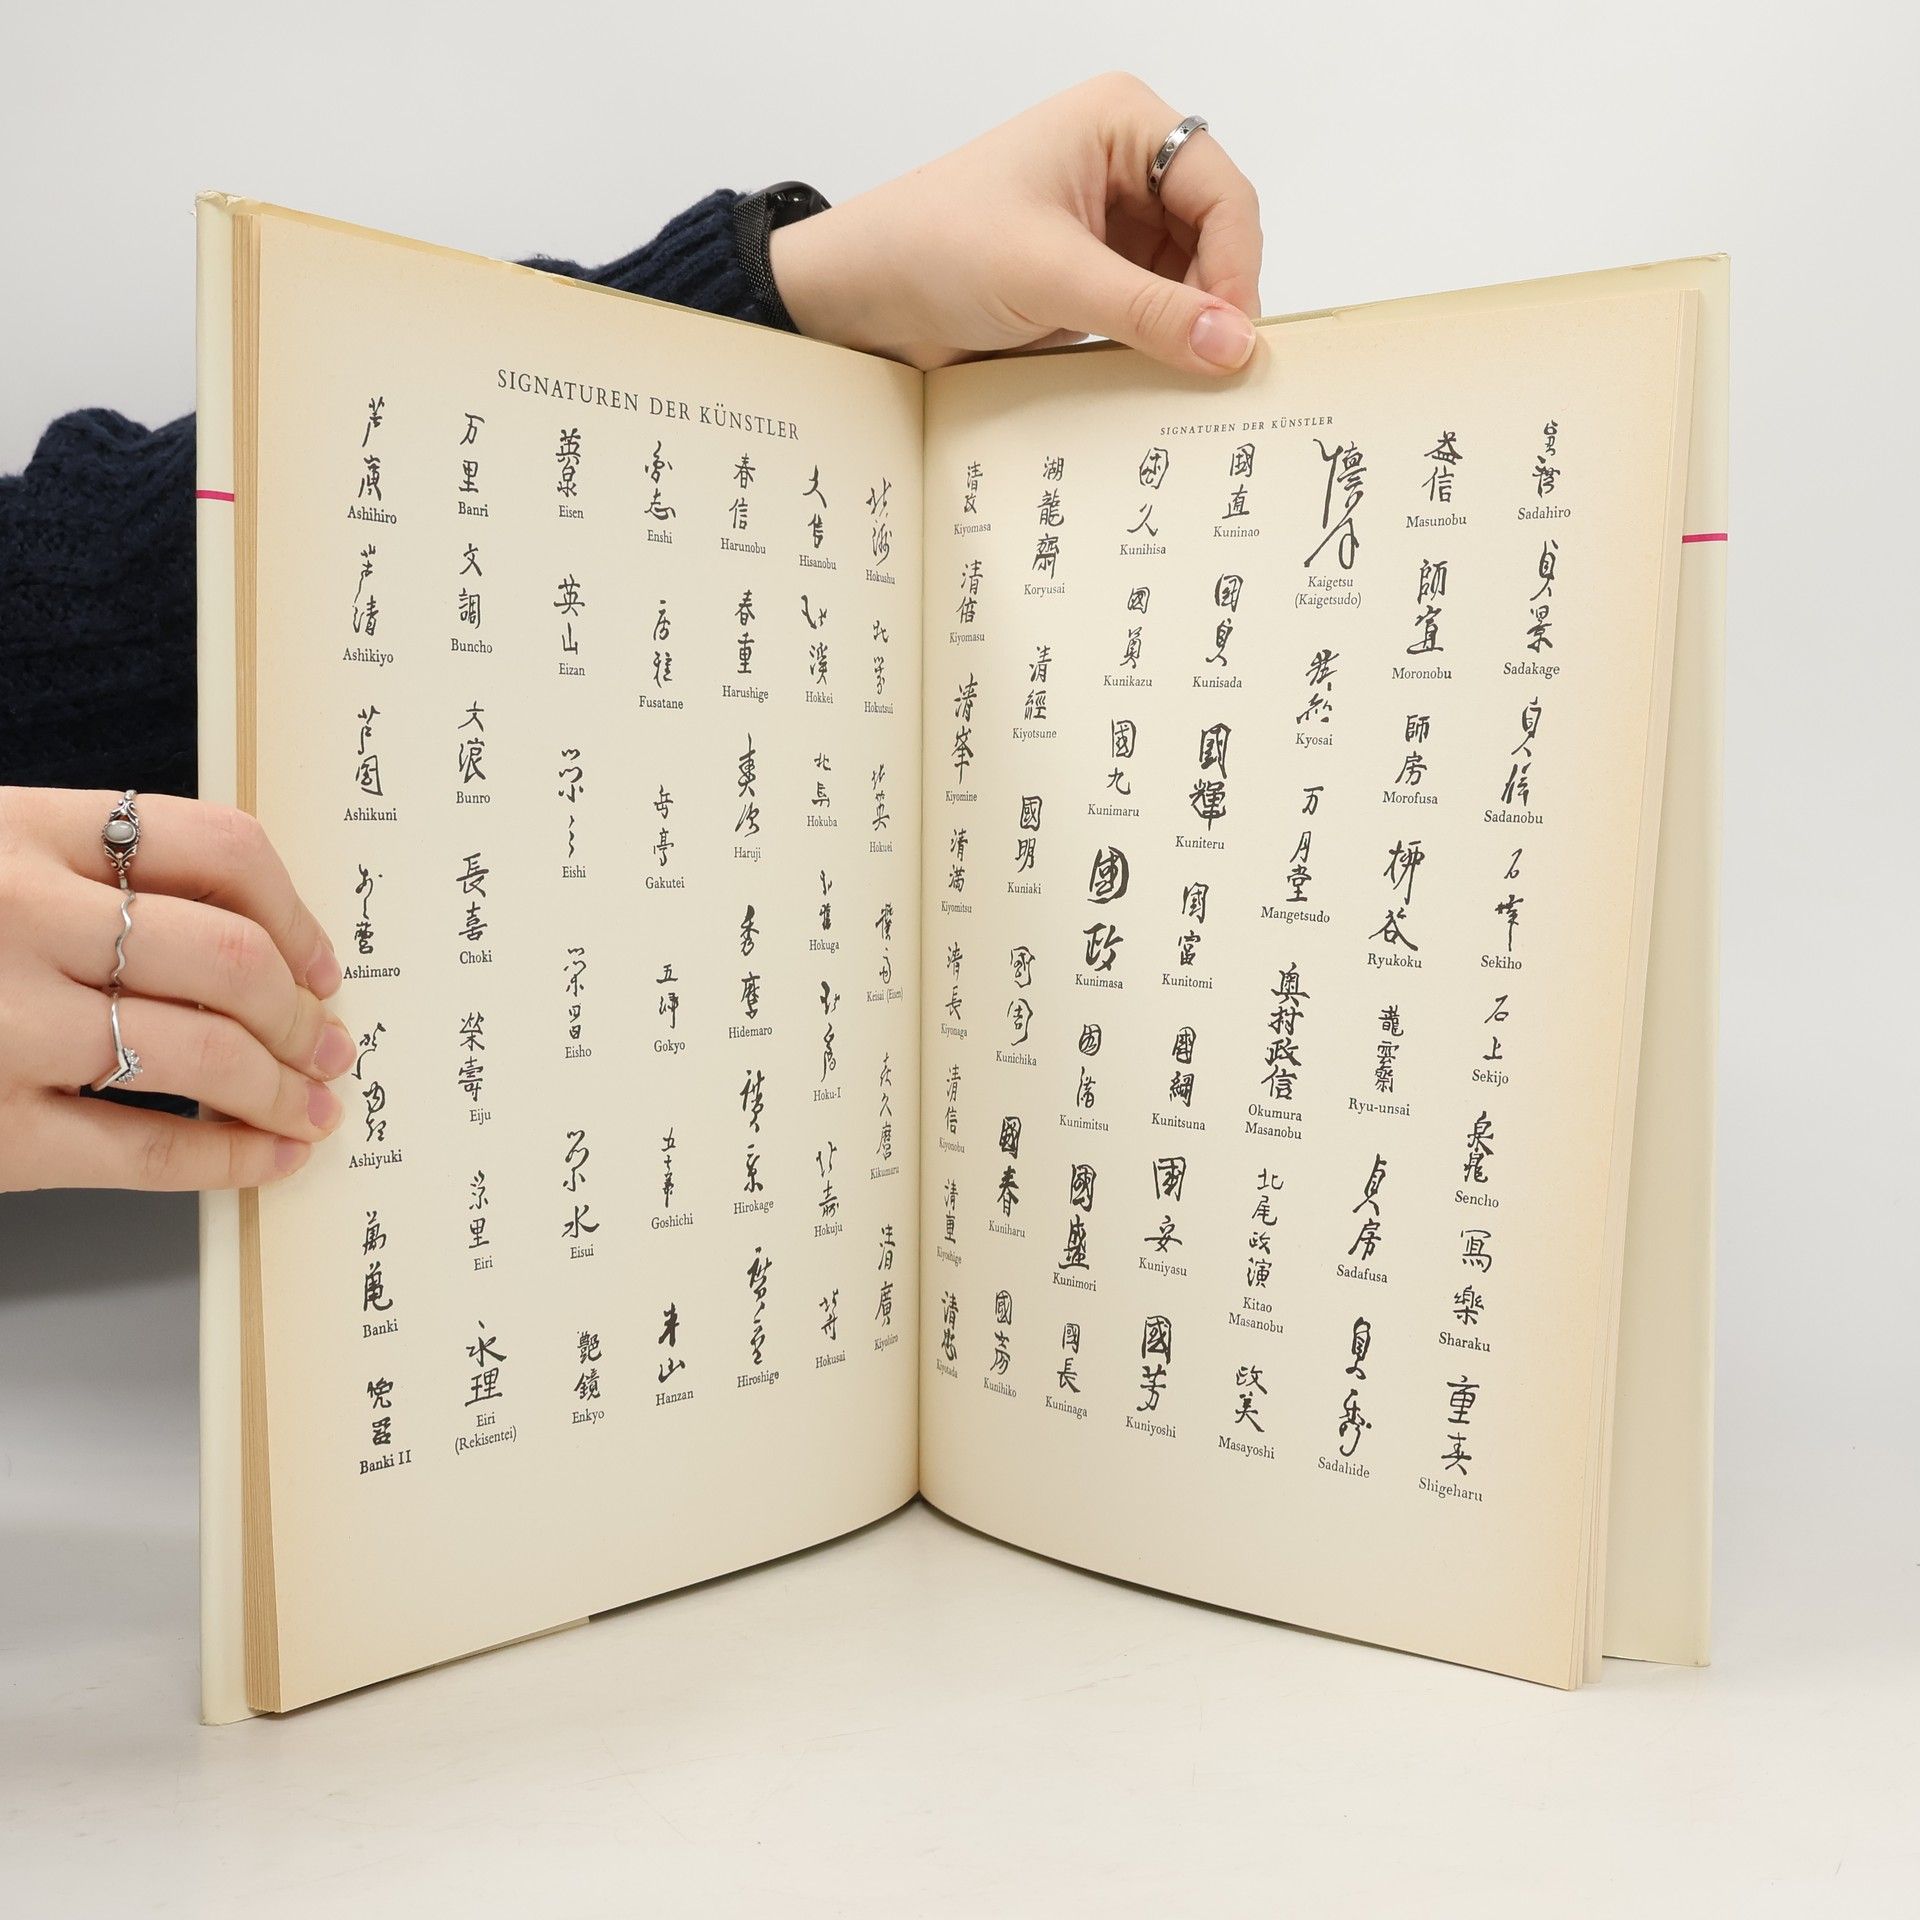 SIGNATUREN DER KÜNSTLER
芦廣
Ashihiro
芦清
Ashikiyo
芦国
Ashikuni
Ashimaro
Ashiyuki
萬亀
Banki
Banki II
万里
Banri
文調
Buncho
文浪
Bunro
長喜
Choki
榮壽
Eiju
栄里
Eiri
永理
Eiri
(Rekisentei)
英泉
Eisen
英山
Eizan
栄之
Eishi
栄昌
Eisho
栄水
Eisui
艶鏡
Enkyo
Enshi
房種
Fusatane
岳亭
Gakutei
五郷
Gokyo
五七
Goshichi
半山
Hanzan
春信
Harunobu
春重
Harushige
Haruji
秀麿
Hidemaro
廣景
Hirokage
廣重
Hiroshige
久信
Hisanobu
北溪
Hokkei
北馬
Hokuba
Hokuga
Hoku-I
北寿
Hokuju
北斎
Hokusai
北洲
Hokushu
北学
Hokutsui
北英
Hokuei
Keisai (Eisen)
喜久麿
Kikumaru
清廣
Kiyohiro
SIGNATUREN DER KÜNSTLER
清政
Kiyomasa
清倍
Kiyomasu
清峯
Kiyomine
清満
Kiyomitsu
清長
Kiyonaga
清信
Kiyonobu
清重
Kiyoshige
清忠
Kiyotada
湖龍齋
Koryusai
清經
Kiyotsune
國明
Kuniaki
國周
Kunichika
國春
Kuniharu
國彦
Kunihiko
國久
Kunihisa
國員
Kunikazu
國九
Kunimaru
國政
Kunimasa
國満
Kunimitsu
國盛
Kunimori
國長
Kuninaga
國直
Kuninao
国貞
Kunisada
國輝
Kuniteru
國富
Kunitomi
國綱
Kunitsuna
國安
Kuniyasu
國芳
Kuniyoshi
懷月
Kaigetsu
(Kaigetsudo)
Kyosai
万月堂
Mangetsudo
奥村政信
Okumura
Masanobu
北尾政演
Kitao
Masanobu
政美
Masayoshi
益信
Masunobu
師宣
Moronobu
師房
Morofusa
柳谷
Ryukoku
龍雲齋
Ryu-unsai
貞房
Sadafusa
貞秀
Sadahide
Sadahiro
貞景
Sadakage
貞信
Sadanobu
石峰
Sekiho
石上
Sekijo
泉晁
Sencho
寫樂
Sharaku
重春
Shigeharu